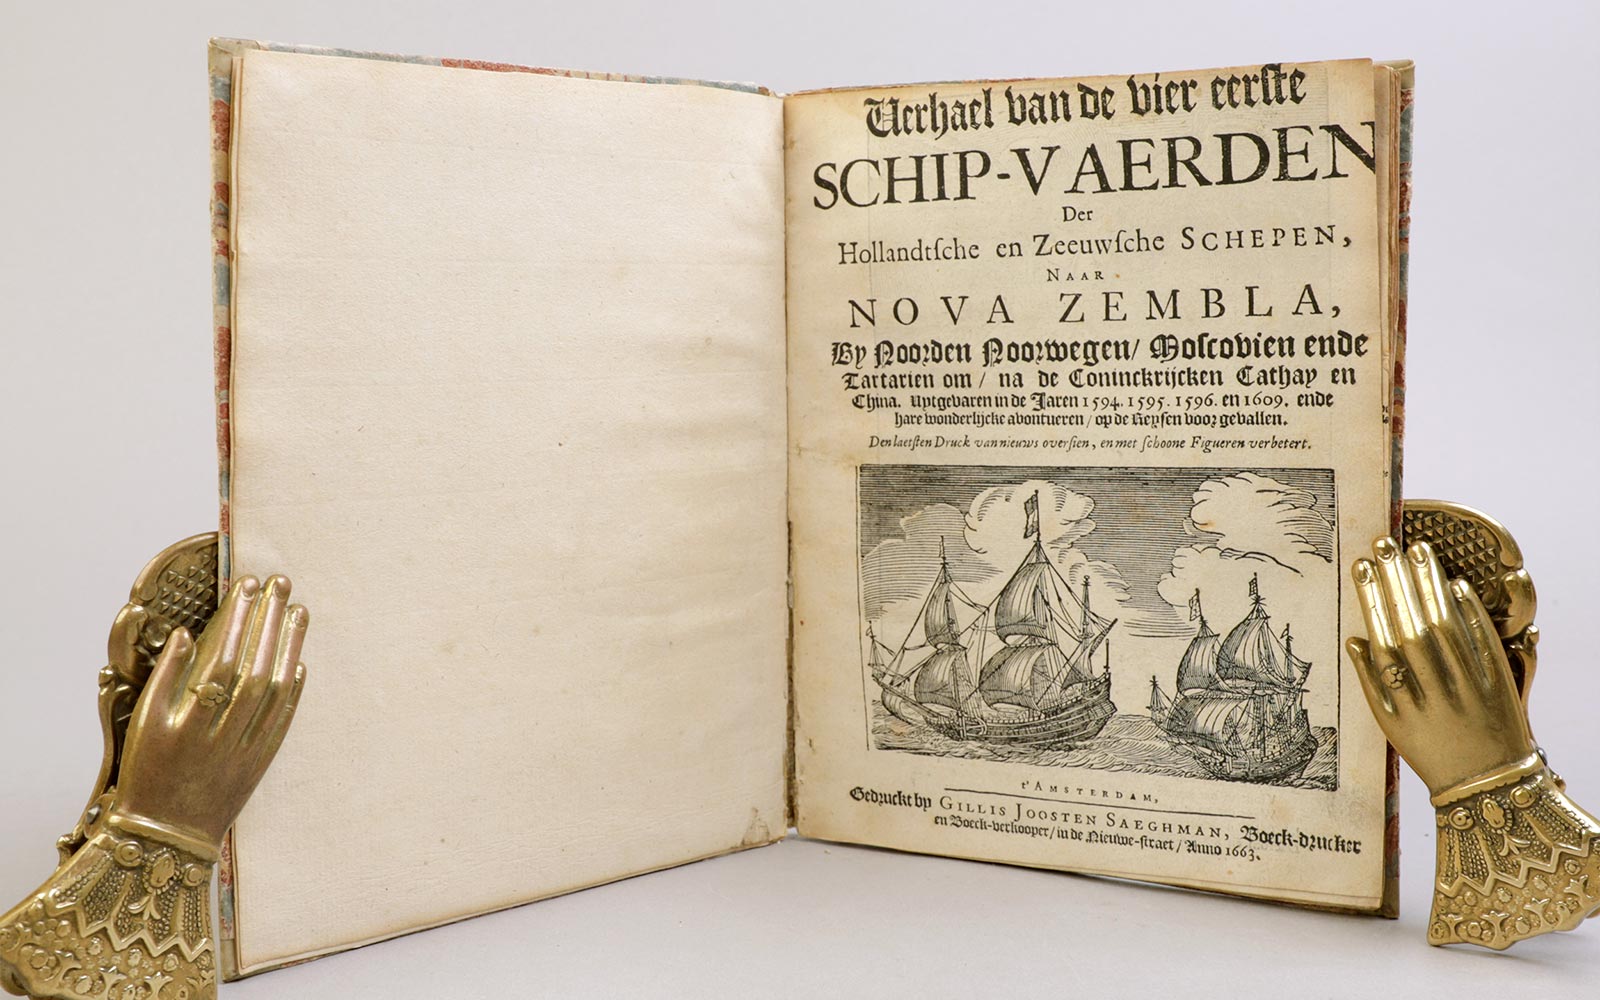 Verhael van de vier eerſte
SCHIP-VAERDEN
Der
Hollandtſche en Zeeuwſche SCHEPEN,
NAAR
NOVA ZEMBLA,
By Noorden Noorwegen/ Moſcovien ende
Tartarien om/ na de Coninckrijcken Cathay en
China. Uytgevaren in de Jaren 1594. 1595. 1596. en 1609. ende
hare wonderlijcke avontueren/ op de Reyſen voor gevallen.
Den laetſten Druck van nieuws overſien, en met ſchoone Figueren verbetert.
t'AMSTERDAM,
Gedruckt by GILLIS JOOSTEN SAEGHMAN, Boeck-drucker
en Boeck-verkooper/ in de Nieuwe-ſtraet/ Anno 1663.